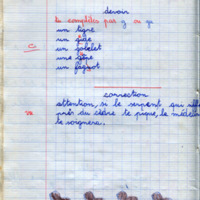 devoir
Je complète par g ou ge
un tigre
un gage
un gobelet
une gêne
un fagot
correction
attention, si le serpent qui
près du chêne te pique, le médecin
te soignera.